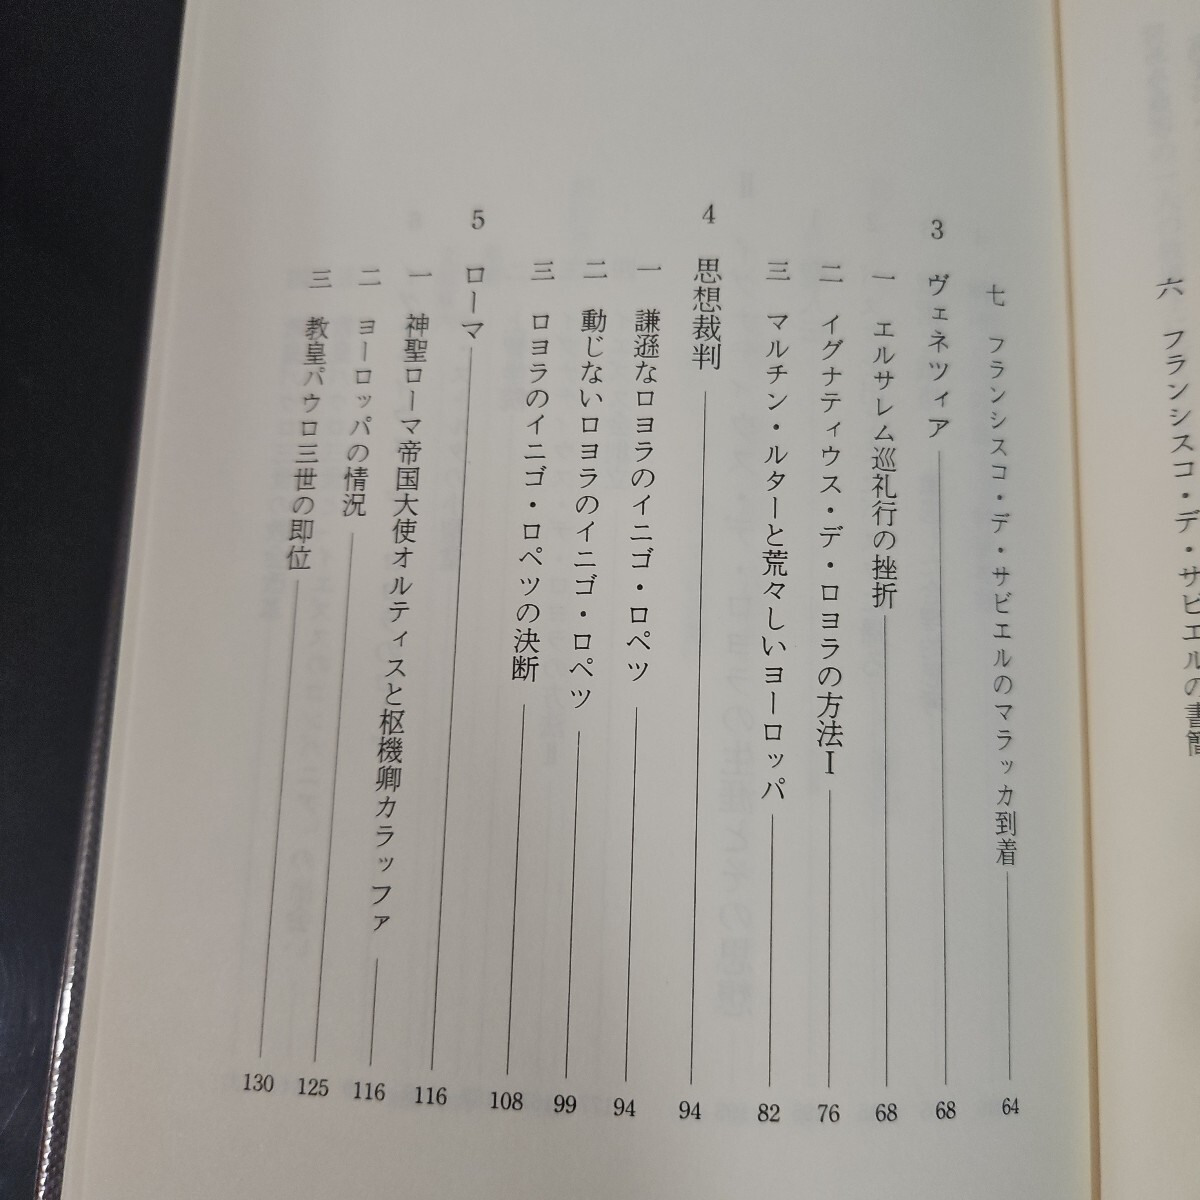 六 フランシスコ・デ・サビエルの書簡
七 フランシスコ・デ・サビエルのマラッカ到着 64
3 ヴェネツィア 68
一 エルサレム巡礼行の挫折 68
二 イグナティウス・デ・ロヨラの方法Ⅰ 76
三 マルチン・ルターと荒々しいヨーロッパ 82
4 思想裁判 94
一 謙遜なロヨラのイニゴ・ロペツ 94
二 動じないロヨラのイニゴ・ロペツ 99
三 ロヨラのイニゴ・ロペツの決断 108
5 ローマ 116
一 神聖ローマ帝国大使オルティスと枢機卿カラッファ 116
二 ヨーロッパの情況 125
三 教皇パウロ三世の即位 130